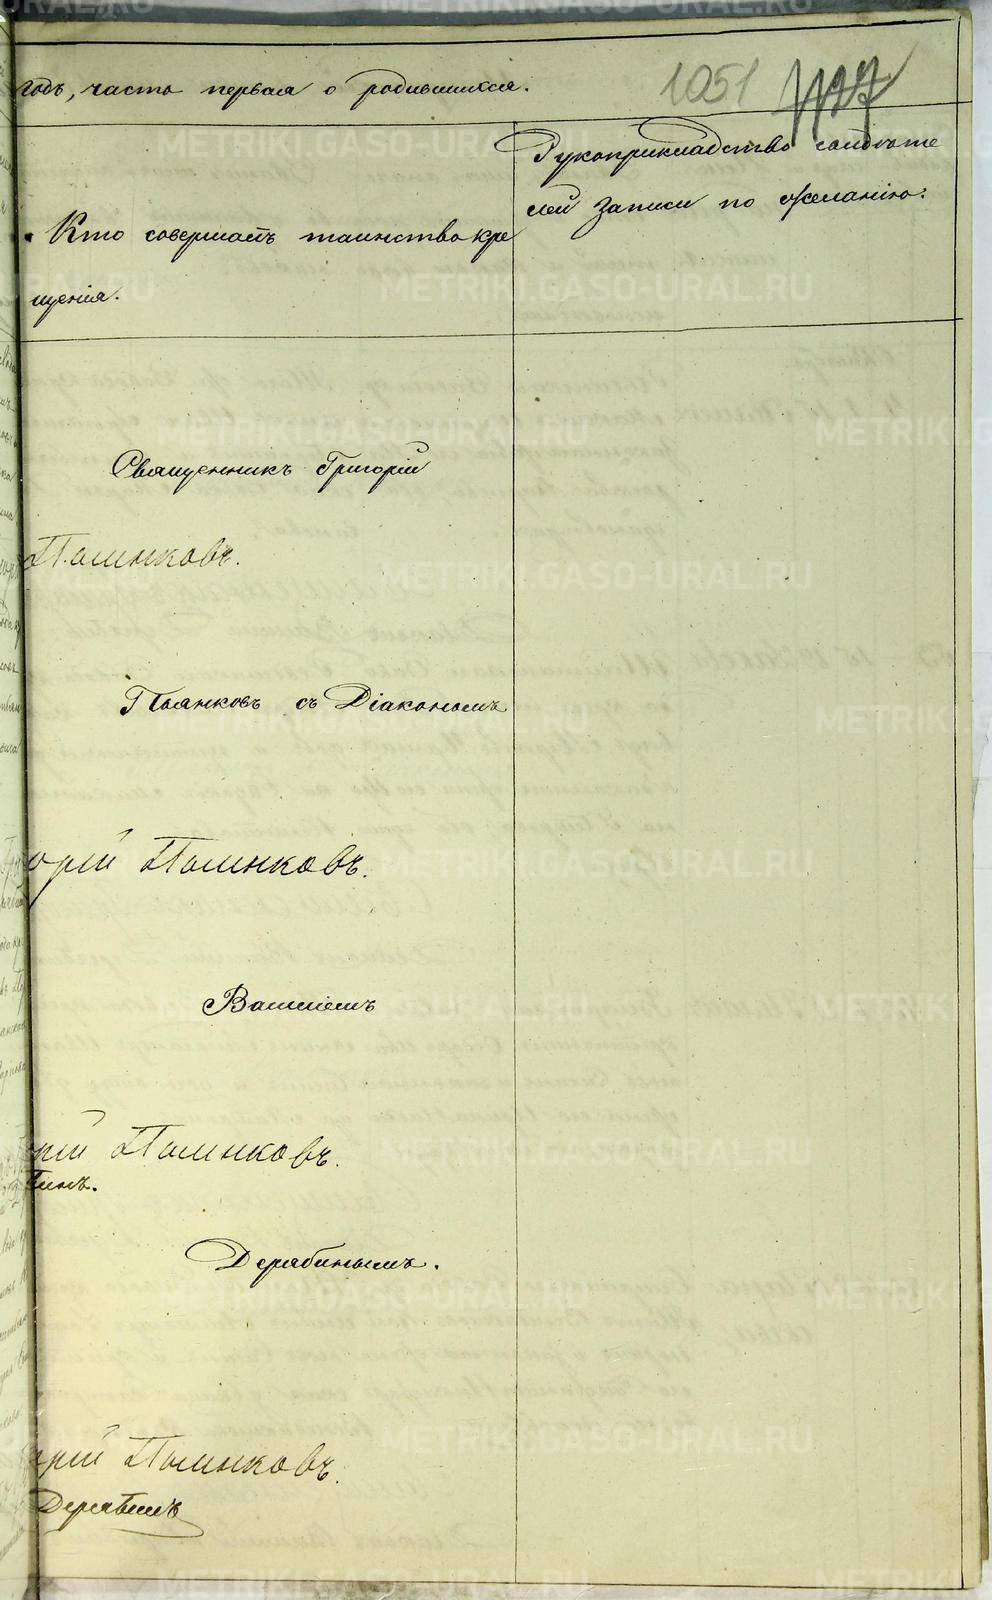 годъ, часть первая о родившихся.
1051
1127
Кто совершалъ таинство кре
щенія.
Рукоприкладство свидѣте
лей записи по желанію.
Священникъ Григорій
Пьянковъ.
Пьянковъ съ Діакономъ
орій Пьянковъ.
Ваниемъ
рій Пьянковъ.
бинъ.
Дерябинымъ.
орій Пьянковъ.
Дерябинъ
METRIKI.GASO-URAL.RU